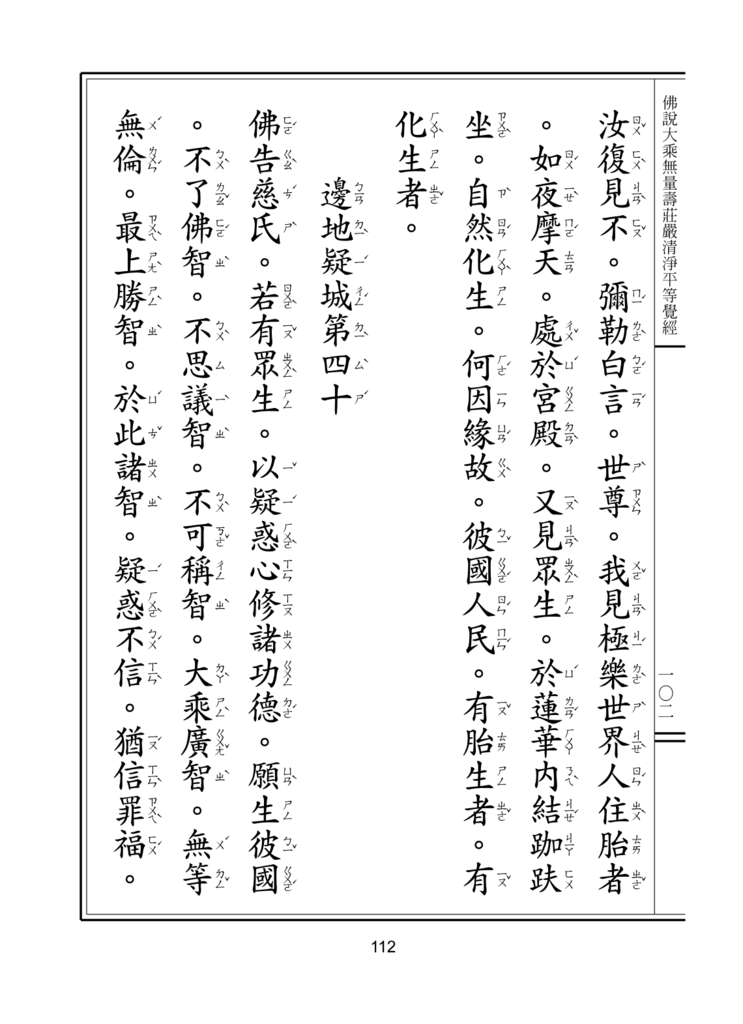 佛說大乘無量壽莊嚴清淨平等覺經
一〇二
汝復見不。彌勒白言。世尊。我見極樂世界人住胎者
。如夜摩天。處於宮殿。又見眾生。於蓮華內結跏趺
坐。自然化生。何因緣故。彼國人民。有胎生者。有
化生者。
邊地疑城第四十
佛告慈氏。若有眾生。以疑惑心修諸功德。願生彼國
。不了佛智。不思議智。不可稱智。大乘廣智。無等
無倫。最上勝智。於此諸智。疑惑不信。猶信罪福。
112